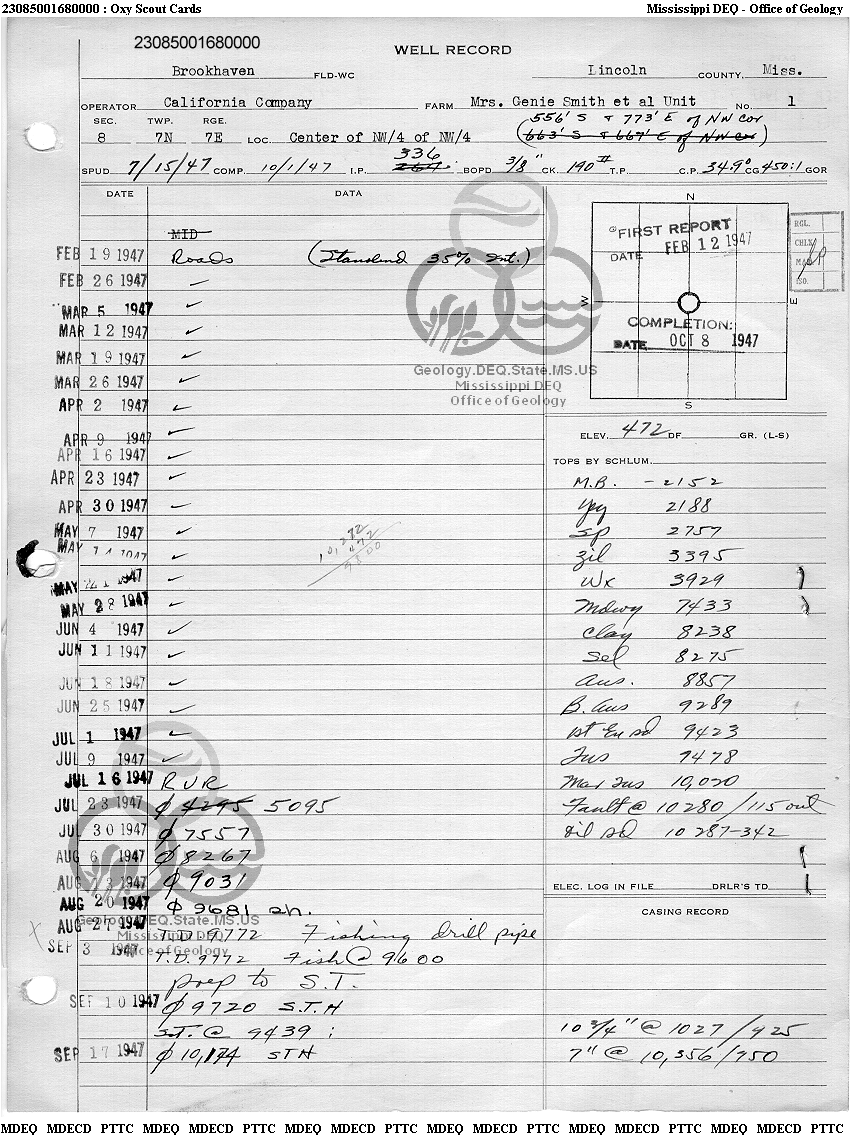 23085001680000 : Oxy Scout Cards Mississippi DEQ - Office of Geology
23085001680000
WELL RECORD
Brookhaven FLD-WC Lincoln COUNTY, Miss.
OPERATOR California Company FARM Mrs. Genie Smith et al Unit NO. 1
SEC. TWP. RGE. 556' S & 773' E of NW Cor
8 7N 7E LOC. Center of NW/4 of NW/4 (663' S & 667' E of NW Cor)
336
SPUD 7/15/47 COMP. 10/1/47 I.P. 267 BOPD 3/8" CK. 190# T.P. C.P. 34.9° CG 450:1 GOR
DATE DATA
MID
FEB 19 1947 Roads (Standard 35% Int.)
FEB 26 1947 ✓
MAR 5 1947 ✓
MAR 12 1947 ✓
MAR 19 1947 ✓
MAR 26 1947 ✓
APR 2 1947 ✓
APR 9 1947 ✓
APR 16 1947 ✓
APR 23 1947 ✓
APR 30 1947 ✓
MAY 7 1947 ✓
MAY 14 1947 ✓
MAY 21 1947 ✓
MAY 28 1947 ✓
JUN 4 1947 ✓
JUN 11 1947 ✓
JUN 18 1947 ✓
JUN 25 1947 ✓
JUL 1 1947 ✓
JUL 9 1947 ✓
JUL 16 1947 RUR
JUL 23 1947 ϕ 4295 5095
JUL 30 1947 ϕ 7557
AUG 6 1947 ϕ 8267
AUG 13 1947 ϕ 9031
AUG 20 1947 ϕ 9681 sh.
AUG 27 1947 T.D. 9772 Fishing drill pipe
SEP 3 1947 T.D. 9772 Fish @ 9600
prep to S.T.
SEP 10 1947 ϕ 9720 S.T.H
S.T. @ 9439 ;
SEP 17 1947 ϕ 10,174 STH
10,272
472
9800
N
W
E
S
FIRST REPORT
DATE FEB 12 1947
COMPLETION:
DATE OCT 8 1947
RGL.
CHLK
MAP
ISO.
Geology.DEQ.State.MS.US
Mississippi DEQ
Office of Geology
ELEV. 472 DF GR. (L-S)
TOPS BY SCHLUM.
M.B. - 2152
Ypy 2188
Sp 2757
Zil 3395
Wx 3929
Mdwy 7433
Clay 8238
Sel 8275
Aus. 8857
B. Aus 9289
1st Eu sd 9423
Tus 9478
Mar Tus 10,020
Fault @ 10280 / 115 out
Oil sd 10287-342
ELEC. LOG IN FILE DRLR'S TD.
CASING RECORD
10 3/4" @ 1027 / 425
7" @ 10,356 / 750
Geology.DEQ.State.MS.US
Mississippi DEQ
Office of Geology
MDEQ MDECD PTTC MDEQ MDECD PTTC MDEQ MDECD PTTC MDEQ MDECD PTTC MDEQ MDECD PTTC MDEQ MDECD PTTC